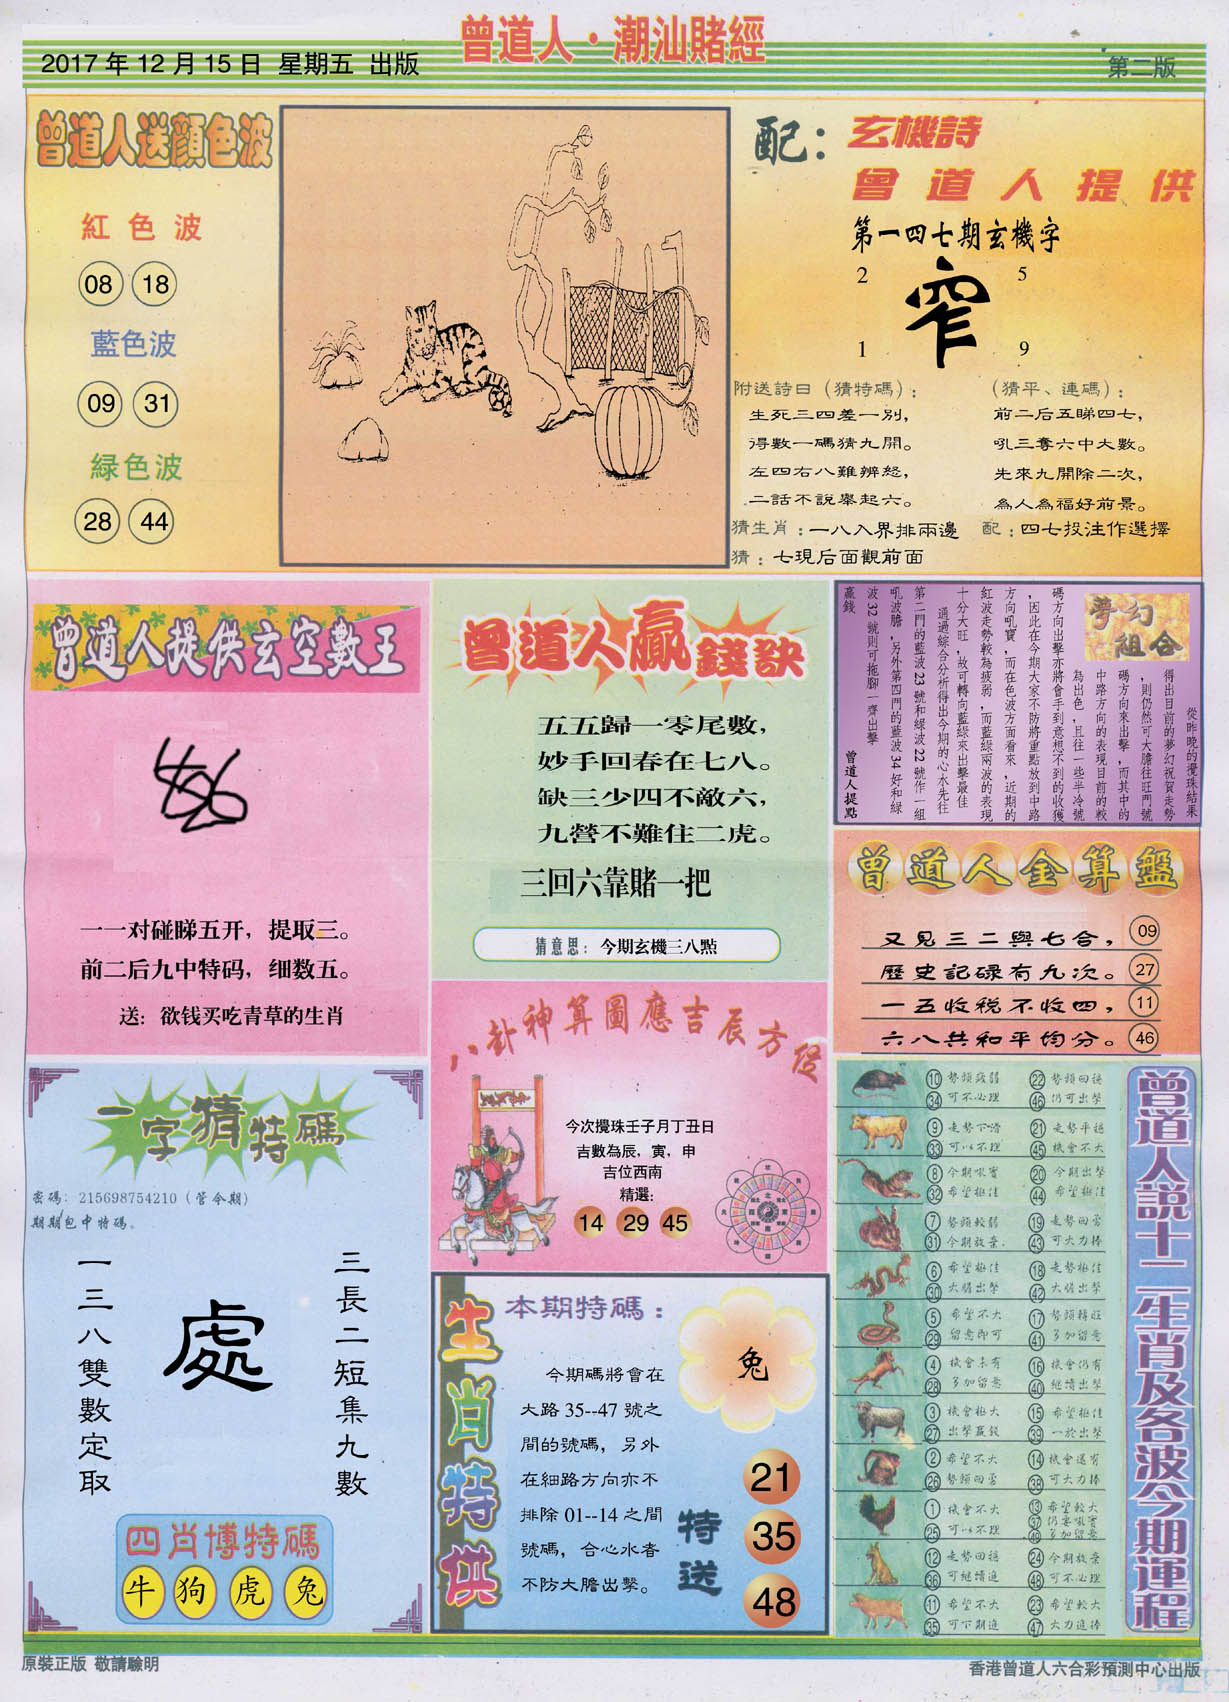 曾道人·潮汕賭經
2017年12月15日 星期五 出版
第二版
曾道人送顔色波
紅色波
08 18
藍色波
09 31
緑色波
28 44
配：
玄機詩
曾道人提供
第一四七期玄機字
2 5
窄
1 9
附送詩曰（猜特碼）：
生死三四差一別，
得數一碼猜九開。
左四右八難辨經，
二話不說舉起六。
（猜平、連碼）：
前二后五睇四七，
吼三奪六中大數。
先來九開除二次，
為人為福好前景。
猜生肖：一八入界排兩邊
配：四七投注作選擇
猜：七現后面觀前面
曾道人提供玄空數王
一一对碰睇五开，提取三。
前二后九中特码，细数五。
送：欲钱买吃青草的生肖
曾道人贏錢訣
五五歸一零尾數，
妙手回春在七八。
缺三少四不敵六，
九營不難住二虎。
三回六靠賭一把
猜意思：今期玄機三八點
夢幻組合
從昨晚的攪珠結果
得出目前的夢幻祝賀走勢
，則仍然可大膽往旺門號
碼方向來出擊，而其中的
中路方向的表現目前的較
為出色，且往一些半冷號
碼方向出擊亦將會手到意想不到的收獲
，因此在今期大家不防將重點放到中路
方向吼寶，而在色波方面看來，近期的
紅波走勢較為疲弱，而藍綠兩波的表現
十分大旺，故可轉向藍綠來出擊最佳
通過綜合分析得出今期的心水先往
第二門的藍波23號和緑波22號作一組
吼波膽，另外第四門的藍波34好和緑
波32號則可拖腳一齊出擊
贏錢
曾道人提點
曾道人金算盤
又見三二與七合，09
歷史記碌有九次。27
一五收税不收四，11
六八共和平均分。46
八卦神算圖應吉辰方位
今次攪珠壬子月丁丑日
吉數為辰，寅，申
吉位西南
精選：
14 29 45
一字猜特碼
密碼：215698754210（管今期）
期期包中特碼。
三長二短集九數
處
一三八雙數定取
四肖博特碼
牛 狗 虎 兔
生肖特供
本期特碼：
兔
今期碼將會在
大路35--47號之
間的號碼，另外
在細路方向亦不
排除01--14之間
號碼，合心水者
不防大膽出擊。
特送
21
35
48
曾道人説十二生肖及各波今期運程
10 勢頭疲弱 22 勢頭回穩
34 可不必理 46 仍可出擊
9 走勢下滑 21 走勢平穩
33 可以不理 45 機會不大
8 今期吼寶 20 今期出擊
32 希望極佳 44 希望極佳
7 勢頭較弱 19 走勢回勇
31 今期放棄 43 可大力捧
6 希望極佳 18 走勢極佳
30 大膽出擊 42 大膽出擊
5 希望不大 17 勢頭轉旺
29 留意即可 41 多加留意
4 機會未有 16 機會仍有
28 多加留意 40 繼續出擊
3 機會極大 15 希望極佳
27 出擊贏錢 39 一於出擊
2 希望不大 14 機會還有
26 勢頭回勇 38 可大力捧
1 機會不大 13 希望較大
37 仍要吼實
25 可以不理 49 多加留意
12 走勢回穩 24 今期放棄
36 可繼續追 48 可不必理
11 希望不大 23 希望較大
35 可下期追 47 大力追捧
原裝正版 敬請驗明
香港曾道人六合彩預測中心出版